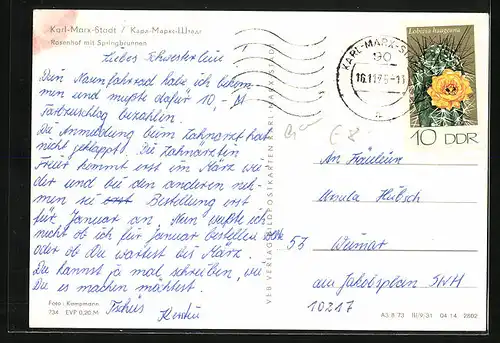 Karl-Marx-Stadt / Карл-Маркс-Штадт
Rosenhof mit Springbrunnen
Liebes Schwesterlein
Dein Rennfahrrad habe ich bekom-
men und mußte dafür 10,- M
Farbzuschlag bezahlen.
Die Anmeldung beim Zahnarzt hat
nicht geklappt. Die Zahnärztin
Freier kommt erst im März wie
der und bei den anderen neh-
men sie erst Bestellung erst
für Januar an. Nun weißte ich
nicht ob ich für Januar bestellen sollte
oder ob Du wartest bis März.
Du kannst ja mal schreiben, wie
Du es machen möchtest.
Tschüs
Foto: Kempmann
734 EVP 0,20 M
VEB VERLAG BILDPOSTKARTEN KARL-MARX-STADT
KARL-MARX-S
90
16.11.75-11
Lobivia haageana
10 DDR
An Fräulein
Ursula Hübsch
53 Weimar
am Jakobsplan SWH
10217
A3 B 73 III/9/31 04 14 2802